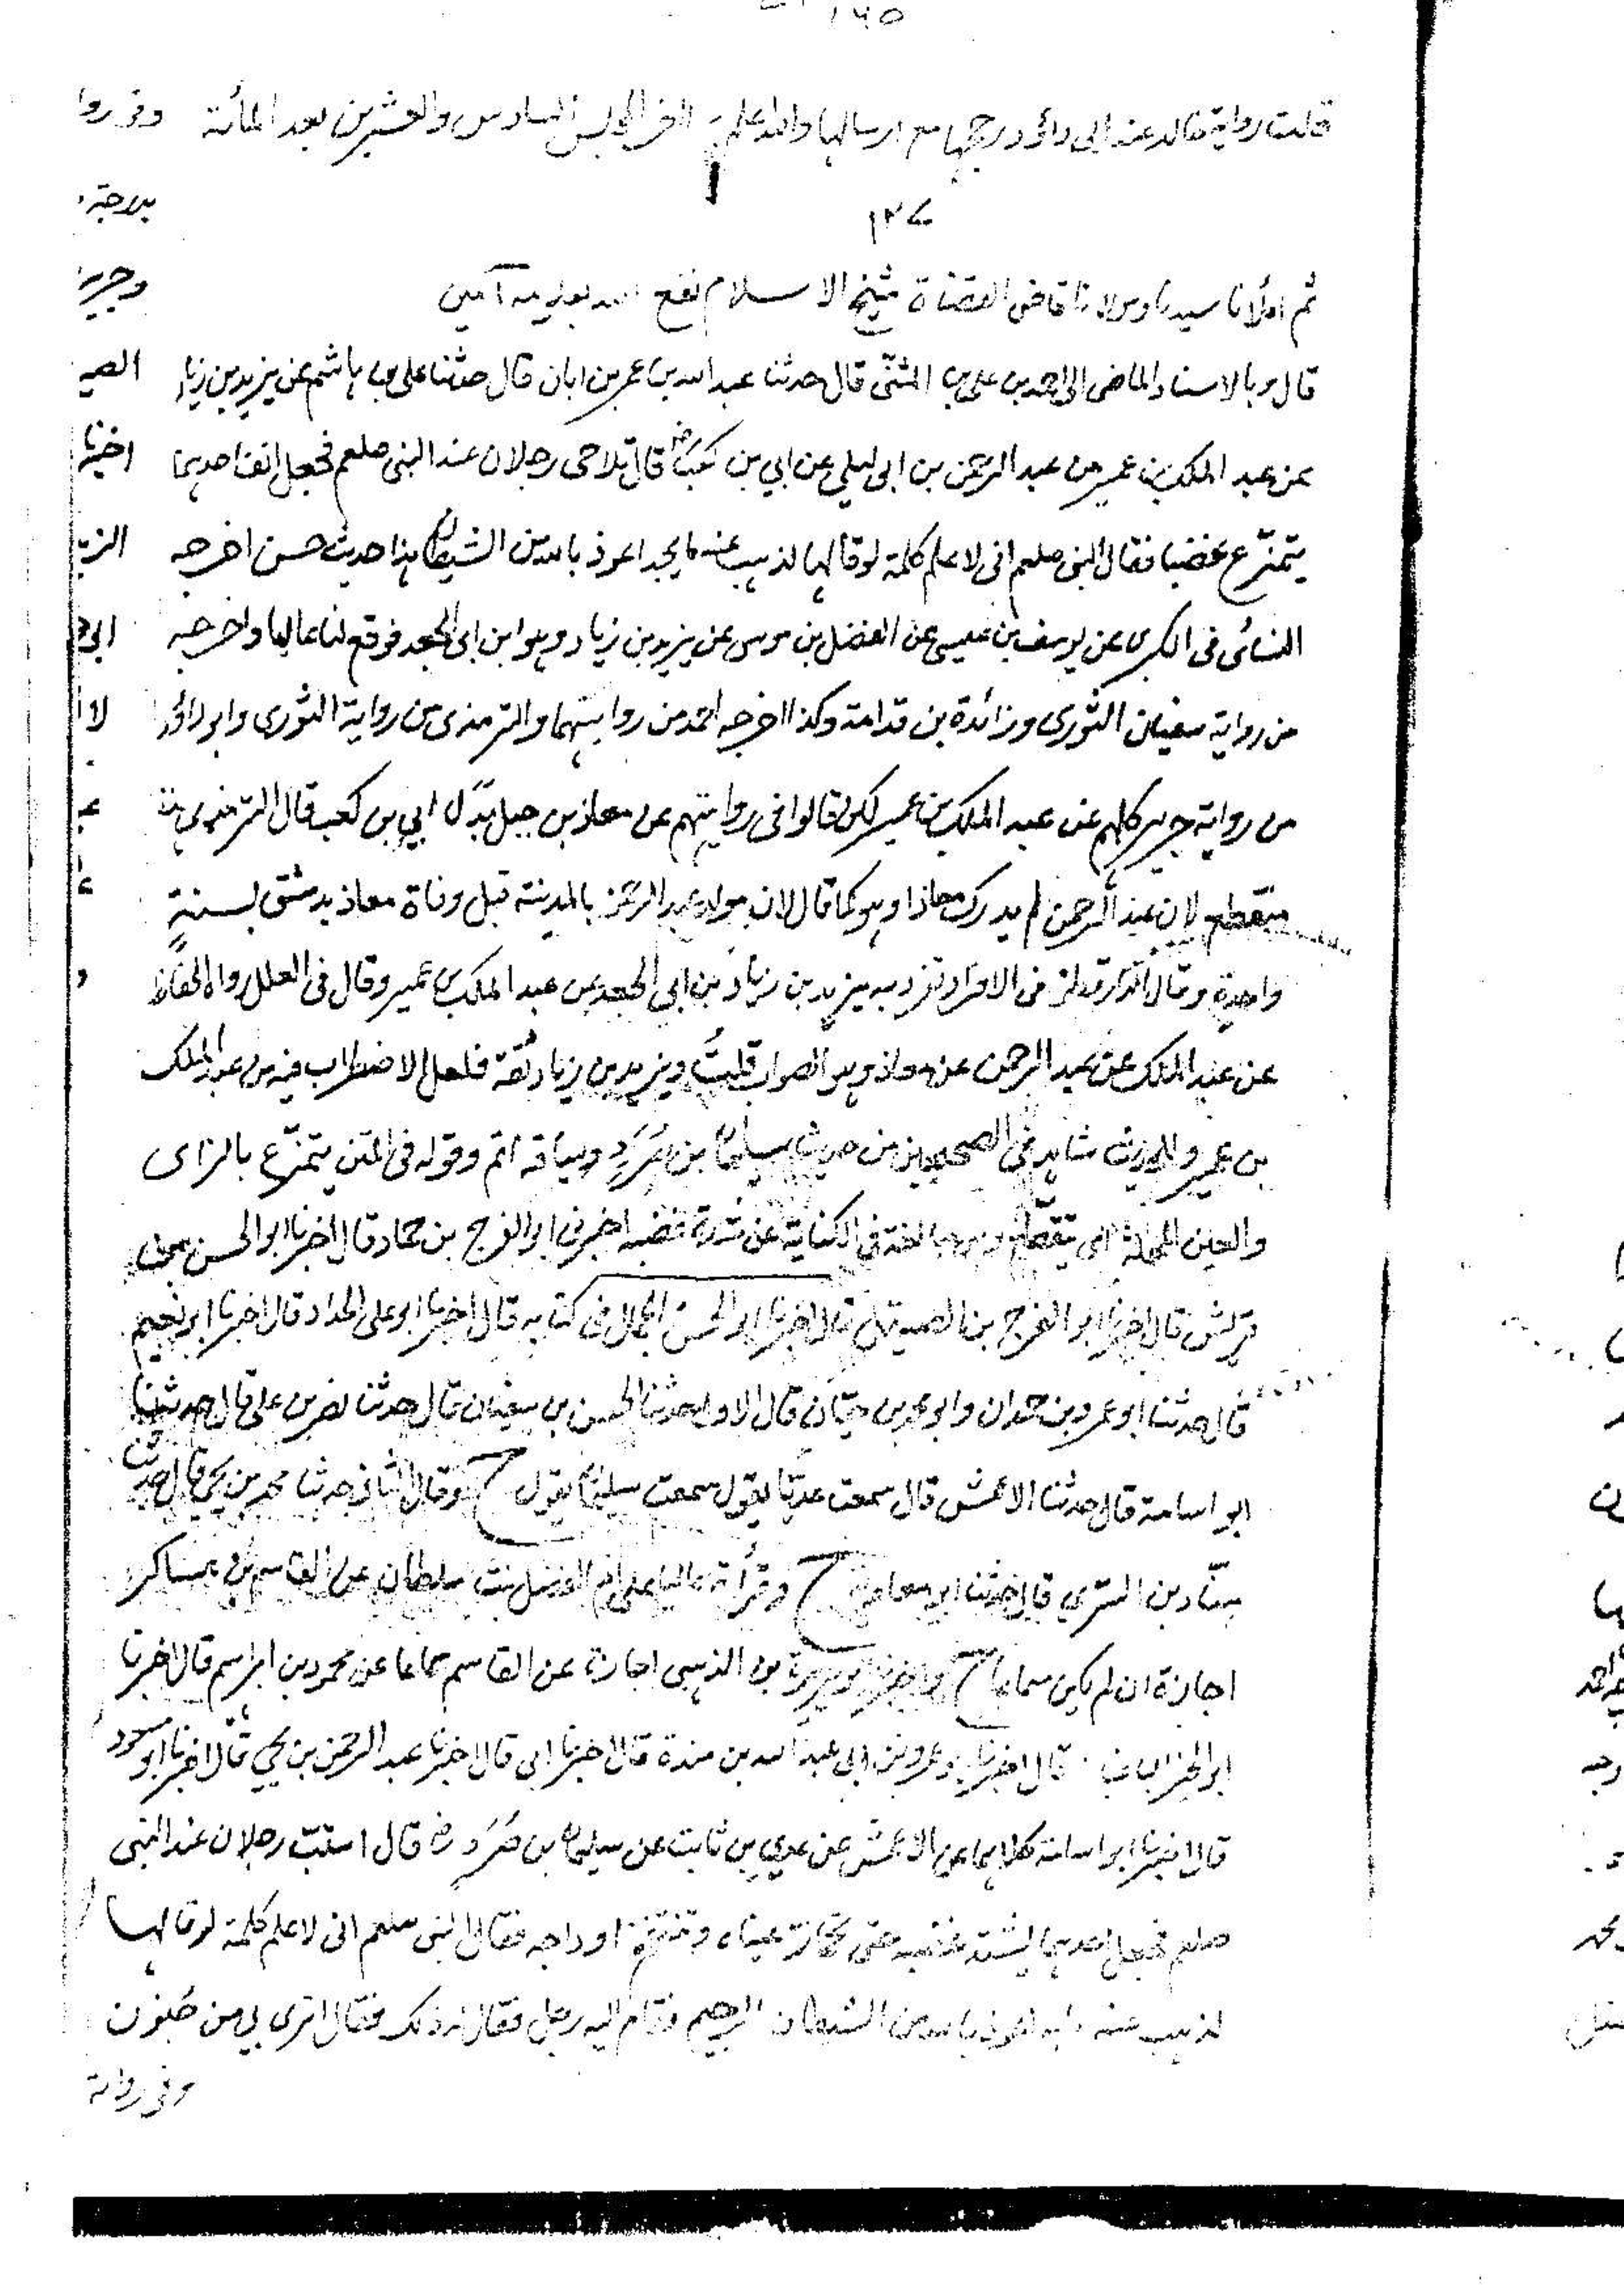 ١٢٥
قلت رواية خالد عند ابى داؤد رجحها مع ارسالها والله اعلم آخر المجلس السادس والعشرين بعد المائة
١٢٧
ثم املأنا سيدنا ومولانا قاضى القضاة شيخ الاسلام نفع الله بعلومه آمين
قال وبالاسناد الماضى الى احمد بن على بن المثنى قال حدثنا عبد الله بن عمر بن ابان قال حدثنا على بن هاشم عن يزيد بن زياد
عن عبد الملك بن عمير عن عبد الرحمن بن ابى ليلى عن ابي بن كعب رض قال تلاحى رجلان عند النبى صلعم فجعل انف احدهما
يتمزّع غضبا فقال النبى صلعم انى لاعلم كلمة لو قالها لذهب عنه ما يجد اعوذ بالله من الشيطان هذا حديث حسن اخرجه
النسائى فى الكبرى عن يوسف بن عيسى عن الفضل بن موسى عن يزيد بن زياد وهو ابن ابى الجعد فوقع لنا عاليا واخرجه
من رواية سفيان الثورى وزائدة بن قدامة وكذا اخرجه احمد من روايتهما والترمذى من رواية الثورى وابو داؤد
من رواية جرير كلهم عن عبد الملك بن عمير لكن قالوا فى روايتهم عن معاذ بن جبل بدل ابي بن كعب قال الترمذى هذا
منقطع لان عبد الرحمن لم يدرك معاذا وهو كما قال لان مولد عبد الرحمن بالمدينة قبل وفاة معاذ بدمشق لسنة
واحدة وقال الدارقطنى فى الافراد تفرد به يزيد بن زياد بن ابى الجعد عن عبد الملك بن عمير وقال فى العلل رواه الحفاظ
عن عبد الملك عن عبد الرحمن عن معاذ وهو الصواب قلت ويزيد بن زياد ثقة فلعل الاضطراب فيه من عبد الملك
بن عمير وللحديث شاهد فى الصحيحين من حديث سليمان بن صُرَدٍ وسياقه اتم وقوله فى المتن يتمزّع بالزاى
والعين المهملة اى يتقطع وهو مبالغة فى الكناية عن شدة غضبه اخبرنى ابو الفرج بن حماد قال اخبرنا ابو الحسن بن
قريش قال اخبرنا ابو الفرج بن الصيقل قال اخبرنا ابو الحسن الجمال فى كتابه قال اخبرنا ابو على الحداد قال اخبرنا ابو نعيم
قال حدثنا ابو عمرو بن حمدان وابو محمد بن حيّان قال الاول حدثنا الحسن بن سفيان قال حدثنا نصر بن على قال حدثنا
ابو اسامة قال حدثنا الاعمش قال سمعت عديّا يقول سمعت سليمان يقول ح وقال الثانى حدثنا محمد بن يحيى قال حدثنا
هنّاد بن السّرى قال حدثنا ابو معاوية ح وقرأته عاليا على ام الفضل بنت سلطان عن القاسم بن عساكر
اجازة ان لم يكن سماعا ح واخبرنا ابو هريرة بن الذهبى اجازة عن القاسم سماعا عن محمود بن ابراهيم قال اخبرنا
ابو الخير قال اخبرنا ابو عمرو بن ابى عبد الله بن مندة قال اخبرنا ابى قال اخبرنا عبد الرحمن بن يحيى قال اخبرنا ابو مسعود
قال اخبرنا ابو اسامة كلاهما عن الاعمش عن عدي بن ثابت عن سليمان بن صُرَدٍ رض قال استبّ رجلان عند النبى
صلعم فجعل احدهما يشتد غضبه حتى تحمارّ عيناه وتنتفخ اوداجه فقال النبى صلعم انى لاعلم كلمة لو قالها
لذهب عنه ما به اعوذ بالله من الشيطان الرجيم فقام اليه رجل فقال له ذلك فقال اترى بى من جنون
وفى رواية
وفى روا
بلاجة
وجرير
الصي
اخبرنا
الز
ابى
لا